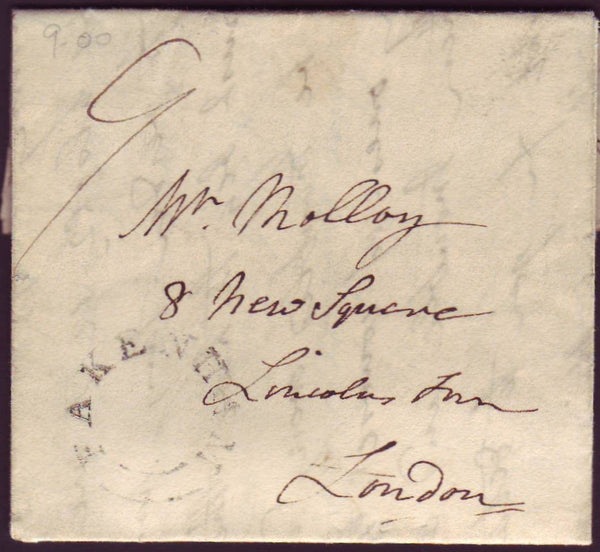 9.00
9
Mr. Molloy
8 New Square
Lincolns Inn
London
FAKENHAM